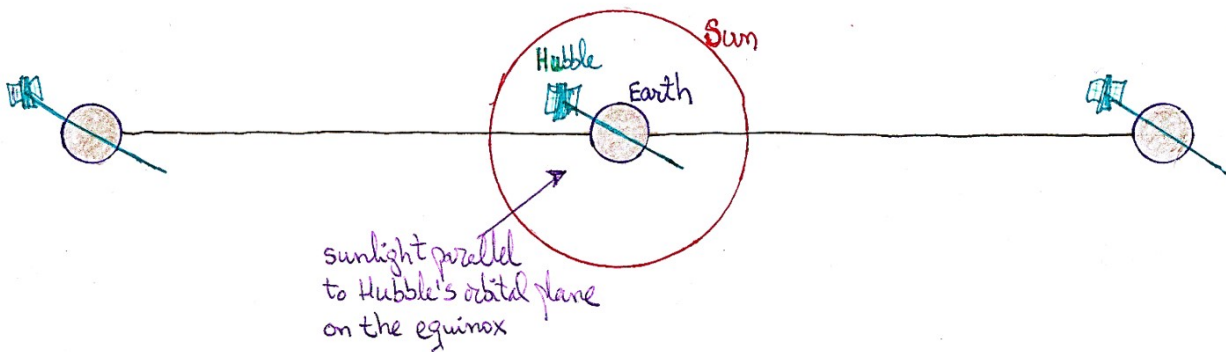 Sun
Hubble
Earth
sunlight parallel
to Hubble's orbital plane
on the equinox